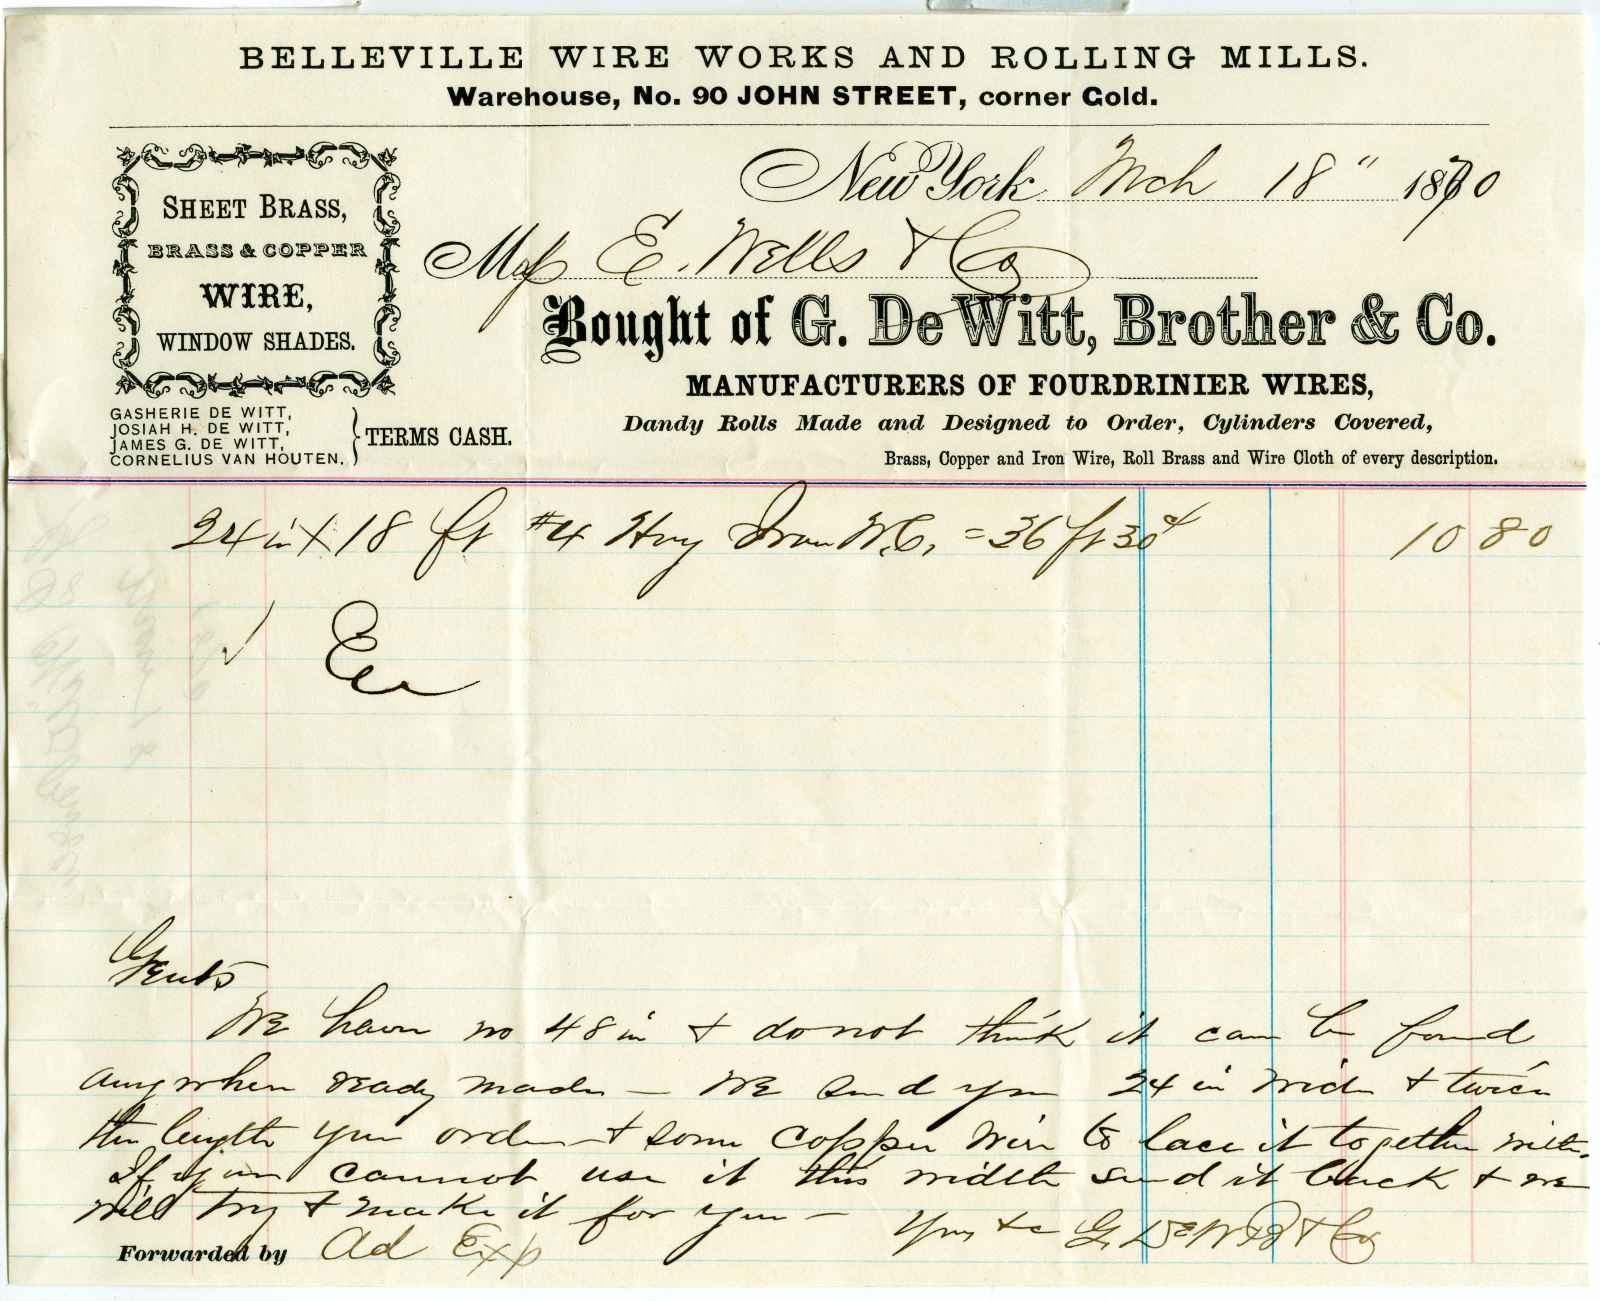 BELLEVILLE WIRE WORKS AND ROLLING MILLS.
Warehouse, No. 90 JOHN STREET, corner Gold.
New York Mch 18" 1870
SHEET BRASS,
BRASS & COPPER
WIRE,
WINDOW SHADES.
Mess E. Wells & Co
Bought of G. De Witt, Brother & Co.
MANUFACTURERS OF FOURDRINIER WIRES,
Dandy Rolls Made and Designed to Order, Cylinders Covered,
Brass, Copper and Iron Wire, Roll Brass and Wire Cloth of every description.
GASHERIE DE WITT,
JOSIAH H. DE WITT,
JAMES G. DE WITT,
CORNELIUS VAN HOUTEN.
TERMS CASH.
24 in X 18 ft #4 Hvy Iron W.C. = 36 ft 30¢ 10 80
Gents
We have no 48 in & do not think it can be found
anywhere ready made — We send you 24 in wide & twice
the length your order & some copper wire to lace it together with.
If you cannot use it this width send it back & we
will try & make it for you — Yours &c G. DeW B & Co
Forwarded by Ad Exp